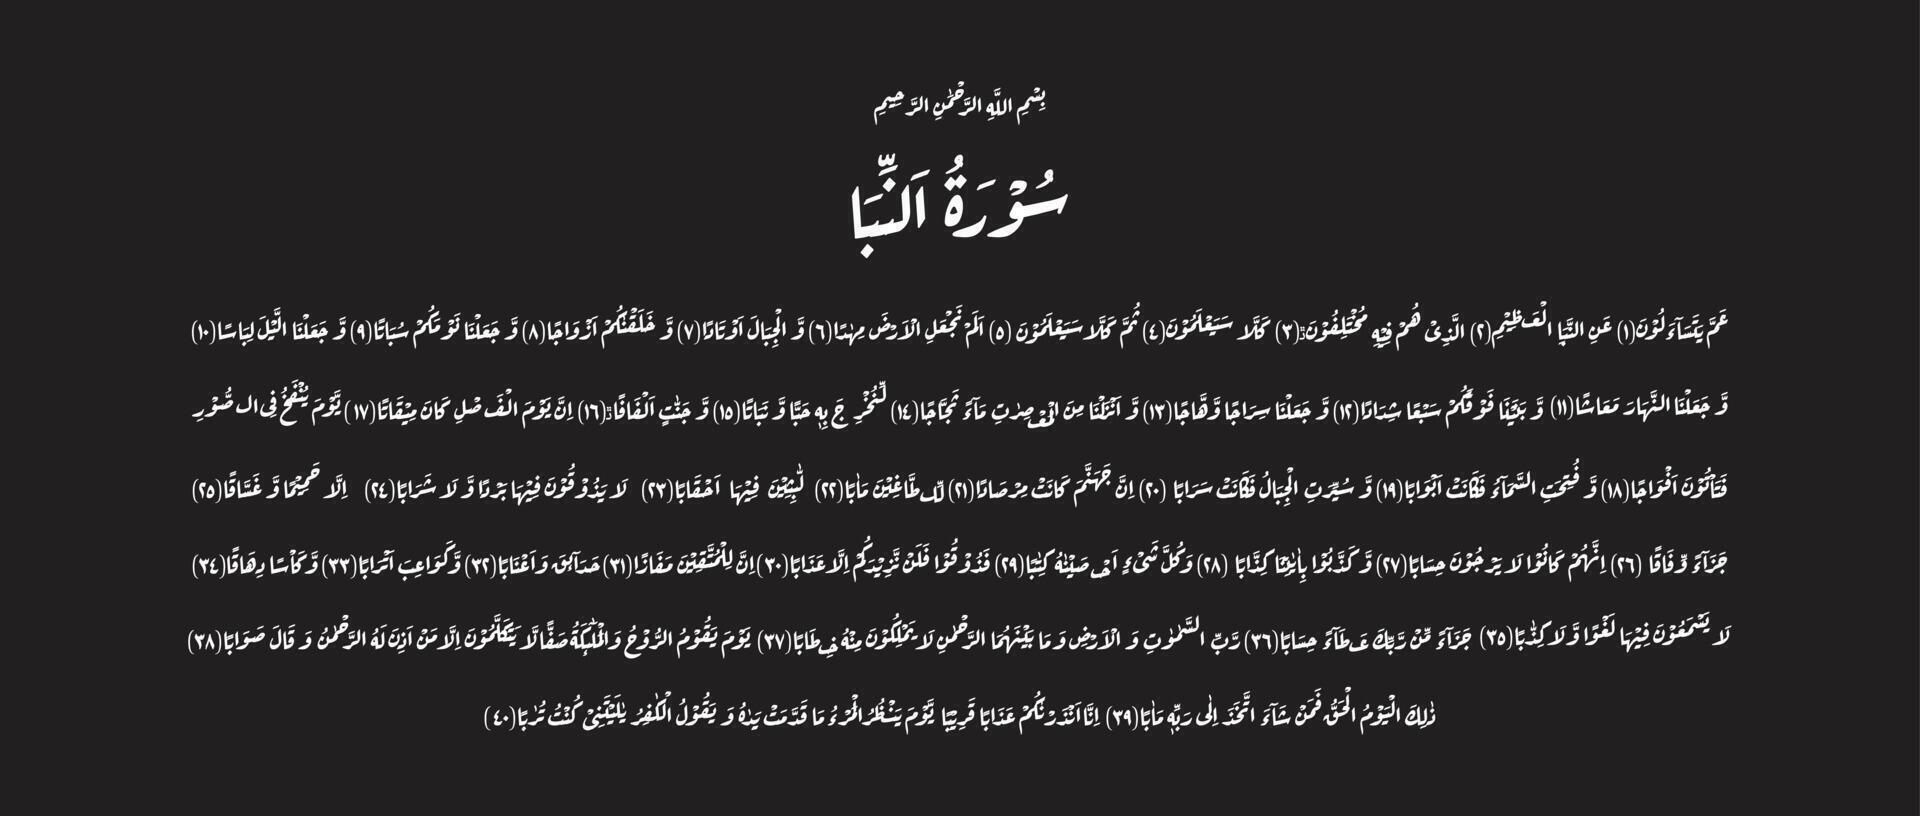 بِسْمِ اللّٰهِ الرَّحْمٰنِ الرَّحِيمِ
سُوْرَةُ اَلنَّبَا
عَمَّ یَتَسَآءَلُوْنَ(۱) عَنِ النَّبَاِ الْعَظِیْمِ(۲) الَّذِیْ هُمْ فِیْهِ مُخْتَلِفُوْنَؕ(۳) كَلَّا سَیَعْلَمُوْنَ(٤) ثُمَّ كَلَّا سَیَعْلَمُوْنَ (٥) اَلَمْ نَجْعَلِ الْاَرْضَ مِهٰدًا(٦) وَّ الْجِبَالَ اَوْتَادًا(۷) وَّ خَلَقْنٰكُمْ اَزْوَاجًا(۸) وَّ جَعَلْنَا نَوْمَكُمْ سُبَاتًا(۹) وَّ جَعَلْنَا الَّیْلَ لِبَاسًا(۱۰)
وَّ جَعَلْنَا النَّهَارَ مَعَاشًا(۱۱) وَّ بَنَیْنَا فَوْقَكُمْ سَبْعًا شِدَادًا(۱۲) وَّ جَعَلْنَا سِرَاجًا وَّهَّاجًا(۱۳) وَّ اَنْزَلْنَا مِنَ الْمُعْصِرٰتِ مَآءً ثَجَّاجًا(۱٤) لِّنُخْرِ جَ بِهٖ حَبًّا وَّ نَبَاتًا(۱٥) وَّ جَنّٰتٍ اَلْفَافًاؕ(۱٦) اِنَّ یَوْمَ الْفَصْلِ كَانَ مِیْقَاتًا(۱۷) یَّوْمَ یُنْفَخُ فِی الصُّوْرِ
فَتَاْتُوْنَ اَفْوَاجًا(۱۸) وَّ فُتِحَتِ السَّمَآءُ فَكَانَتْ اَبْوَابًا(۱۹) وَّ سُیِّرَتِ الْجِبَالُ فَكَانَتْ سَرَابًا (۲۰) اِنَّ جَهَنَّمَ كَانَتْ مِرْصَادًا(۲۱) لِّلطَّاغِیْنَ مَاٰبًا(۲۲) لّٰبِثِیْنَ فِیْهَا اَحْقَابًا(۲۳) لَا یَذُوْقُوْنَ فِیْهَا بَرْدًا وَّ لَا شَرَابًا(۲٤) اِلَّا حَمِیْمًا وَّ غَسَّاقًا(۲٥)
جَزَآءً وِّفَاقًا (۲٦) اِنَّهُمْ كَانُوْا لَا یَرْجُوْنَ حِسَابًا(۲۷) وَّ كَذَّبُوْا بِاٰیٰتِنَا كِذَّابًا (۲۸) وَكُلَّ شَیْءٍ اَحْصَیْنٰهُ كِتٰبًا(۲۹) فَذُوْقُوْا فَلَنْ نَّزِیْدَكُمْ اِلَّا عَذَابًا(۳۰) اِنَّ لِلْمُتَّقِیْنَ مَفَازًا(۳۱) حَدَآىٕقَ وَ اَعْنَابًا(۳۲) وَّكَوَاعِبَ اَتْرَابًا(۳۳) وَّكَاْسًا دِهَاقًا(۳٤)
لَا یَسْمَعُوْنَ فِیْهَا لَغْوًا وَّ لَا كِذّٰبًا(۳٥) جَزَآءً مِّنْ رَّبِّكَ عَطَآءً حِسَابًا(۳٦) رَّبِّ السَّمٰوٰتِ وَ الْاَرْضِ وَ مَا بَیْنَهُمَا الرَّحْمٰنِ لَا یَمْلِكُوْنَ مِنْهُ خِطَابًا(۳۷) یَوْمَ یَقُوْمُ الرُّوْحُ وَ الْمَلٰٓىٕكَةُ صَفًّا لَّا یَتَكَلَّمُوْنَ اِلَّا مَنْ اَذِنَ لَهُ الرَّحْمٰنُ وَ قَالَ صَوَابًا(۳۸)
ذٰلِكَ الْیَوْمُ الْحَقُّ فَمَنْ شَآءَ اتَّخَذَ اِلٰى رَبِّهٖ مَاٰبًا(۳۹) اِنَّا اَنْذَرْنٰكُمْ عَذَابًا قَرِیْبًا یَّوْمَ یَنْظُرُ الْمَرْءُ مَا قَدَّمَتْ یَدٰهُ وَ یَقُوْلُ الْكٰفِرُ یٰلَیْتَنِیْ كُنْتُ تُرٰبًا(٤۰)